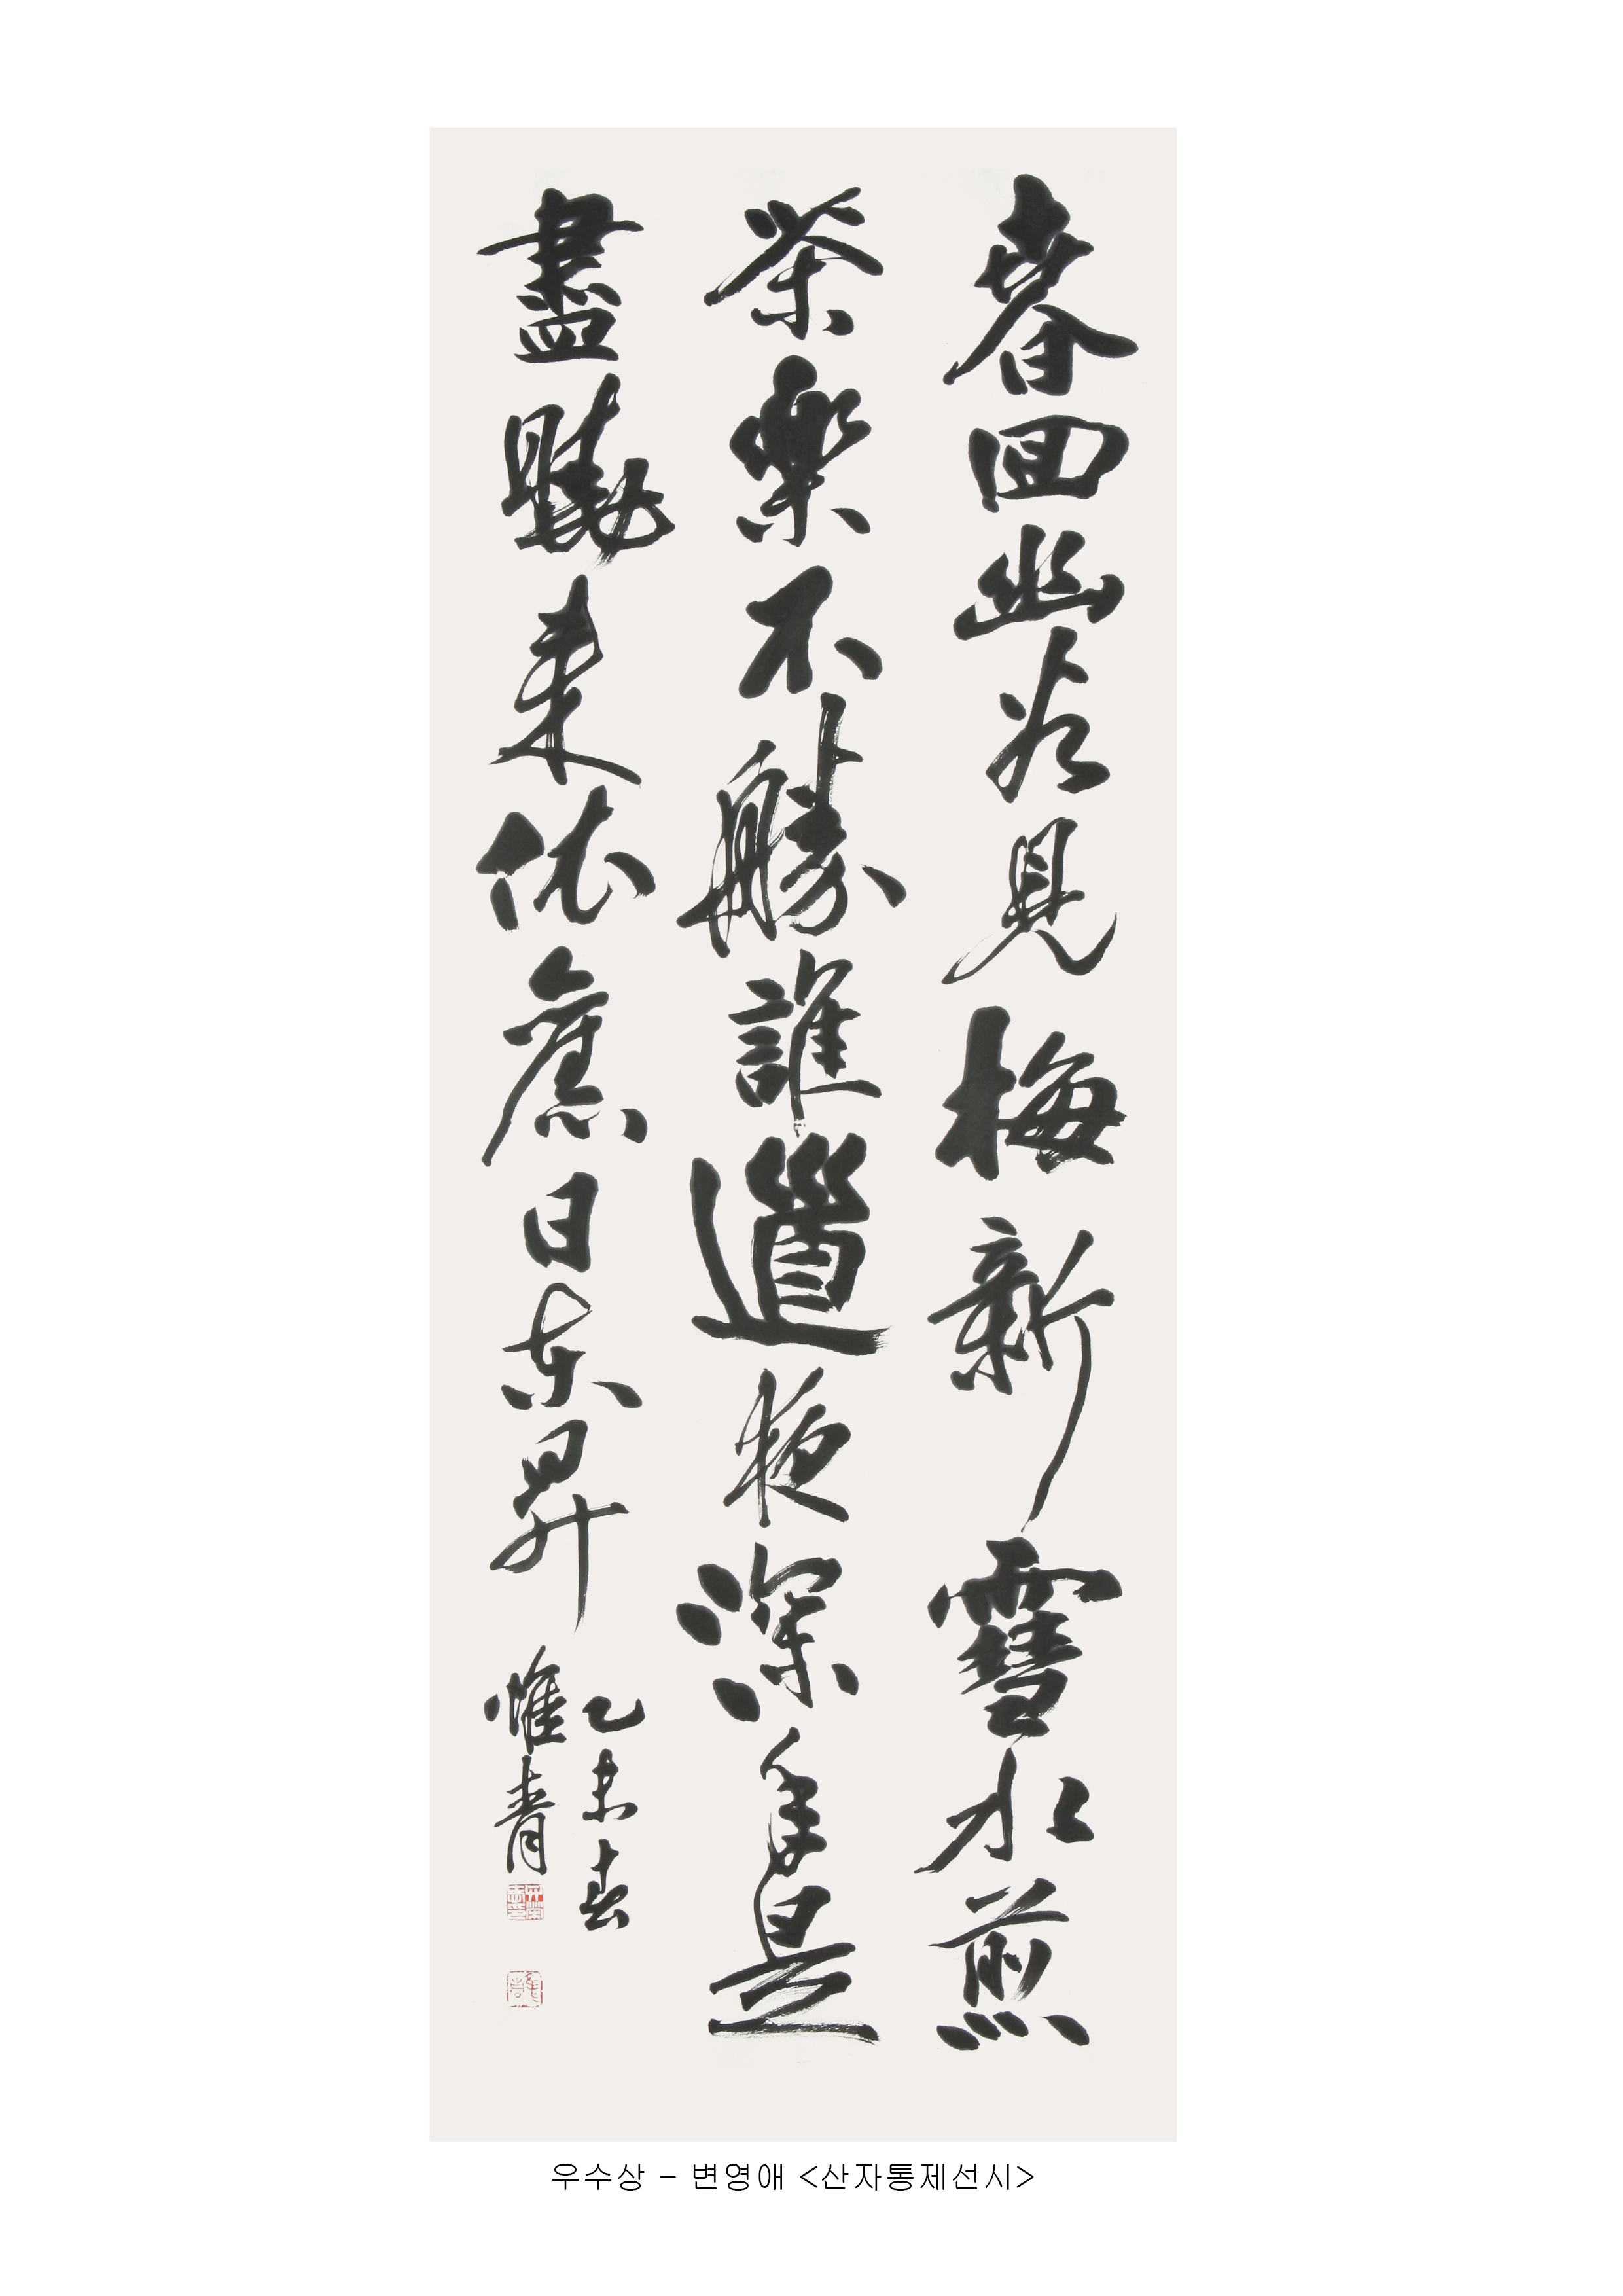 春回幽谷見梅新雪水煎
茶樂不勝誰道夜深年是
盡曉來依舊日東昇
乙未春
惟青
우수상 - 변영애 <산자통제선시>